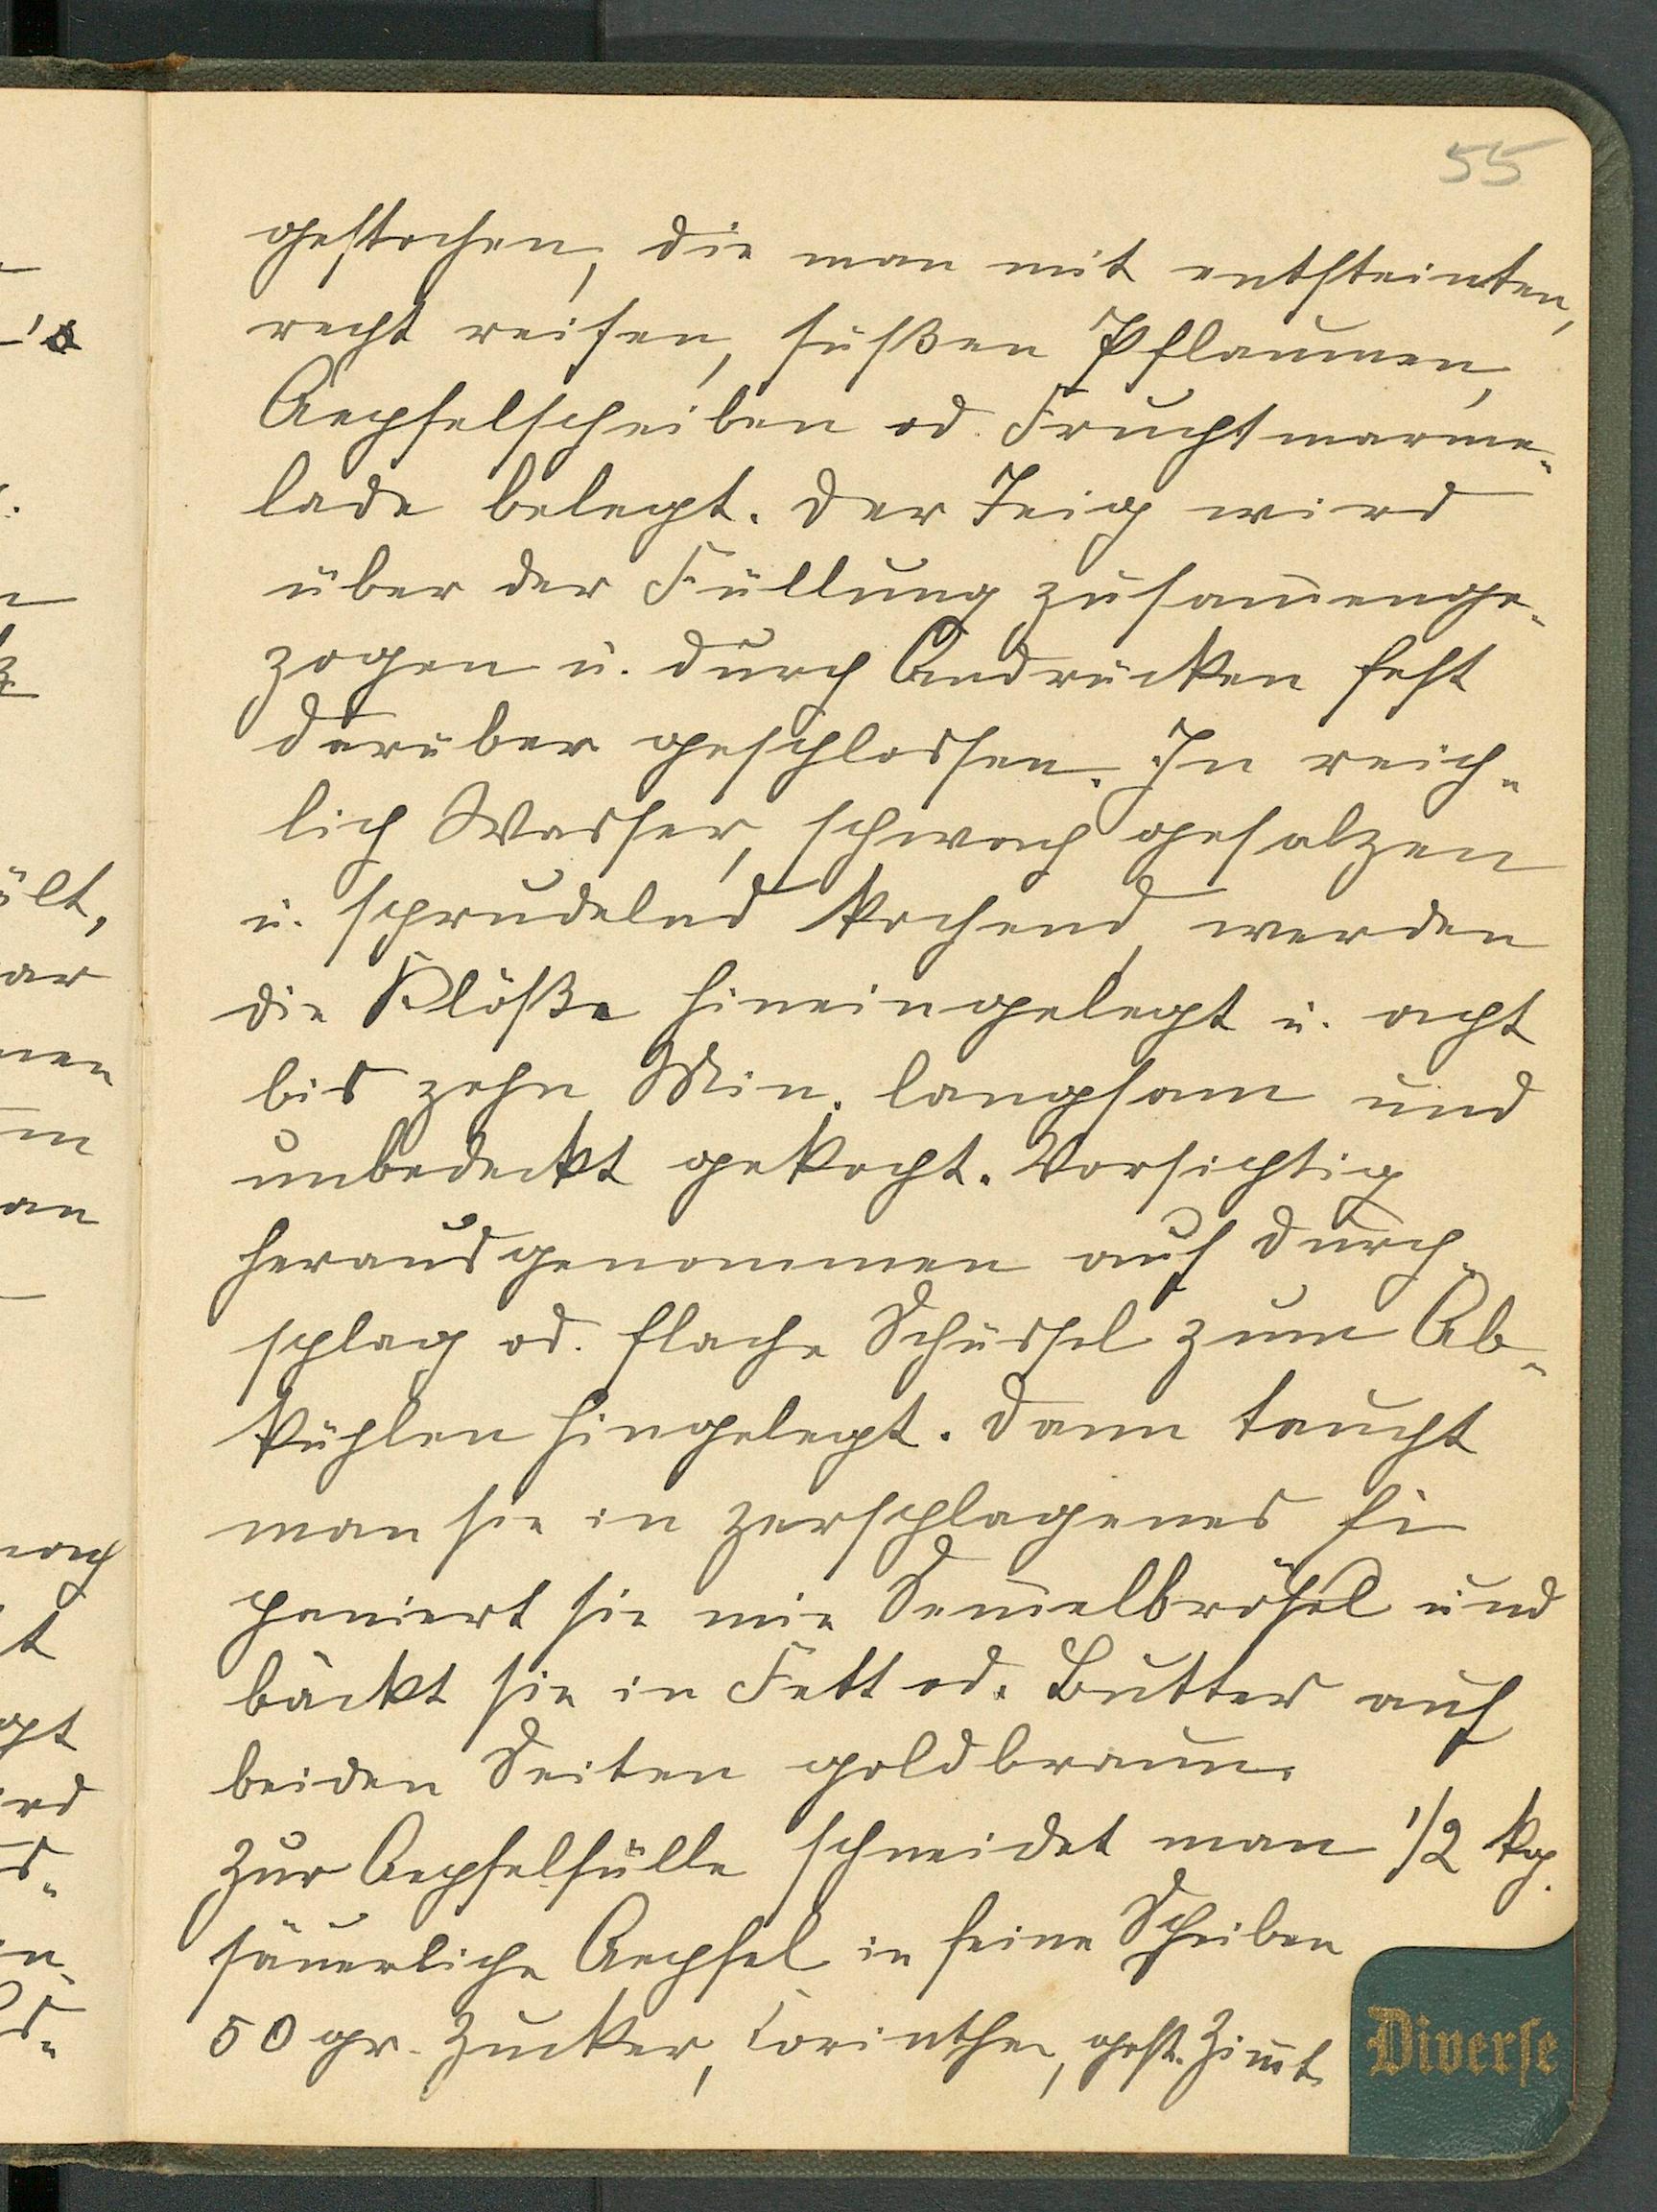 55
gestochen, die man mit entsteinten,
recht reifen, süßen Pflaumen,
Aepfelscheiben od. Fruchtmarme-
lade belegt. Der Teig wird
über der Füllung zusam̅enge-
zogen u. durch Andrücken fest
darüber geschlossen. In reich-
lich Wasser, schwach gesalzen
u. sprudelnd kochend, werden
die Klöße hineingelegt u. acht
bis zehn Min. langsam und
unbedeckt gekocht. Vorsichtig
herausgenommen auf Durch-
schlag od. flache Schüssel zum Ab-
kühlen hingelegt. Dann taucht
man sie in zerschlagenes Ei
paniert sie mie Sem̅elbrösel und
bäckt sie in Fett od. Butter auf
beiden Seiten goldbraun.
Zur Aepfelfülle schneidet man 1/2 kg.
säuerliche Aepfel in feine Scheiben
50 gr. Zucker, Corinthen, gest. Zim̅t.
Diverse
ält,
ar
nen
m
an
noch
t
gt
ird